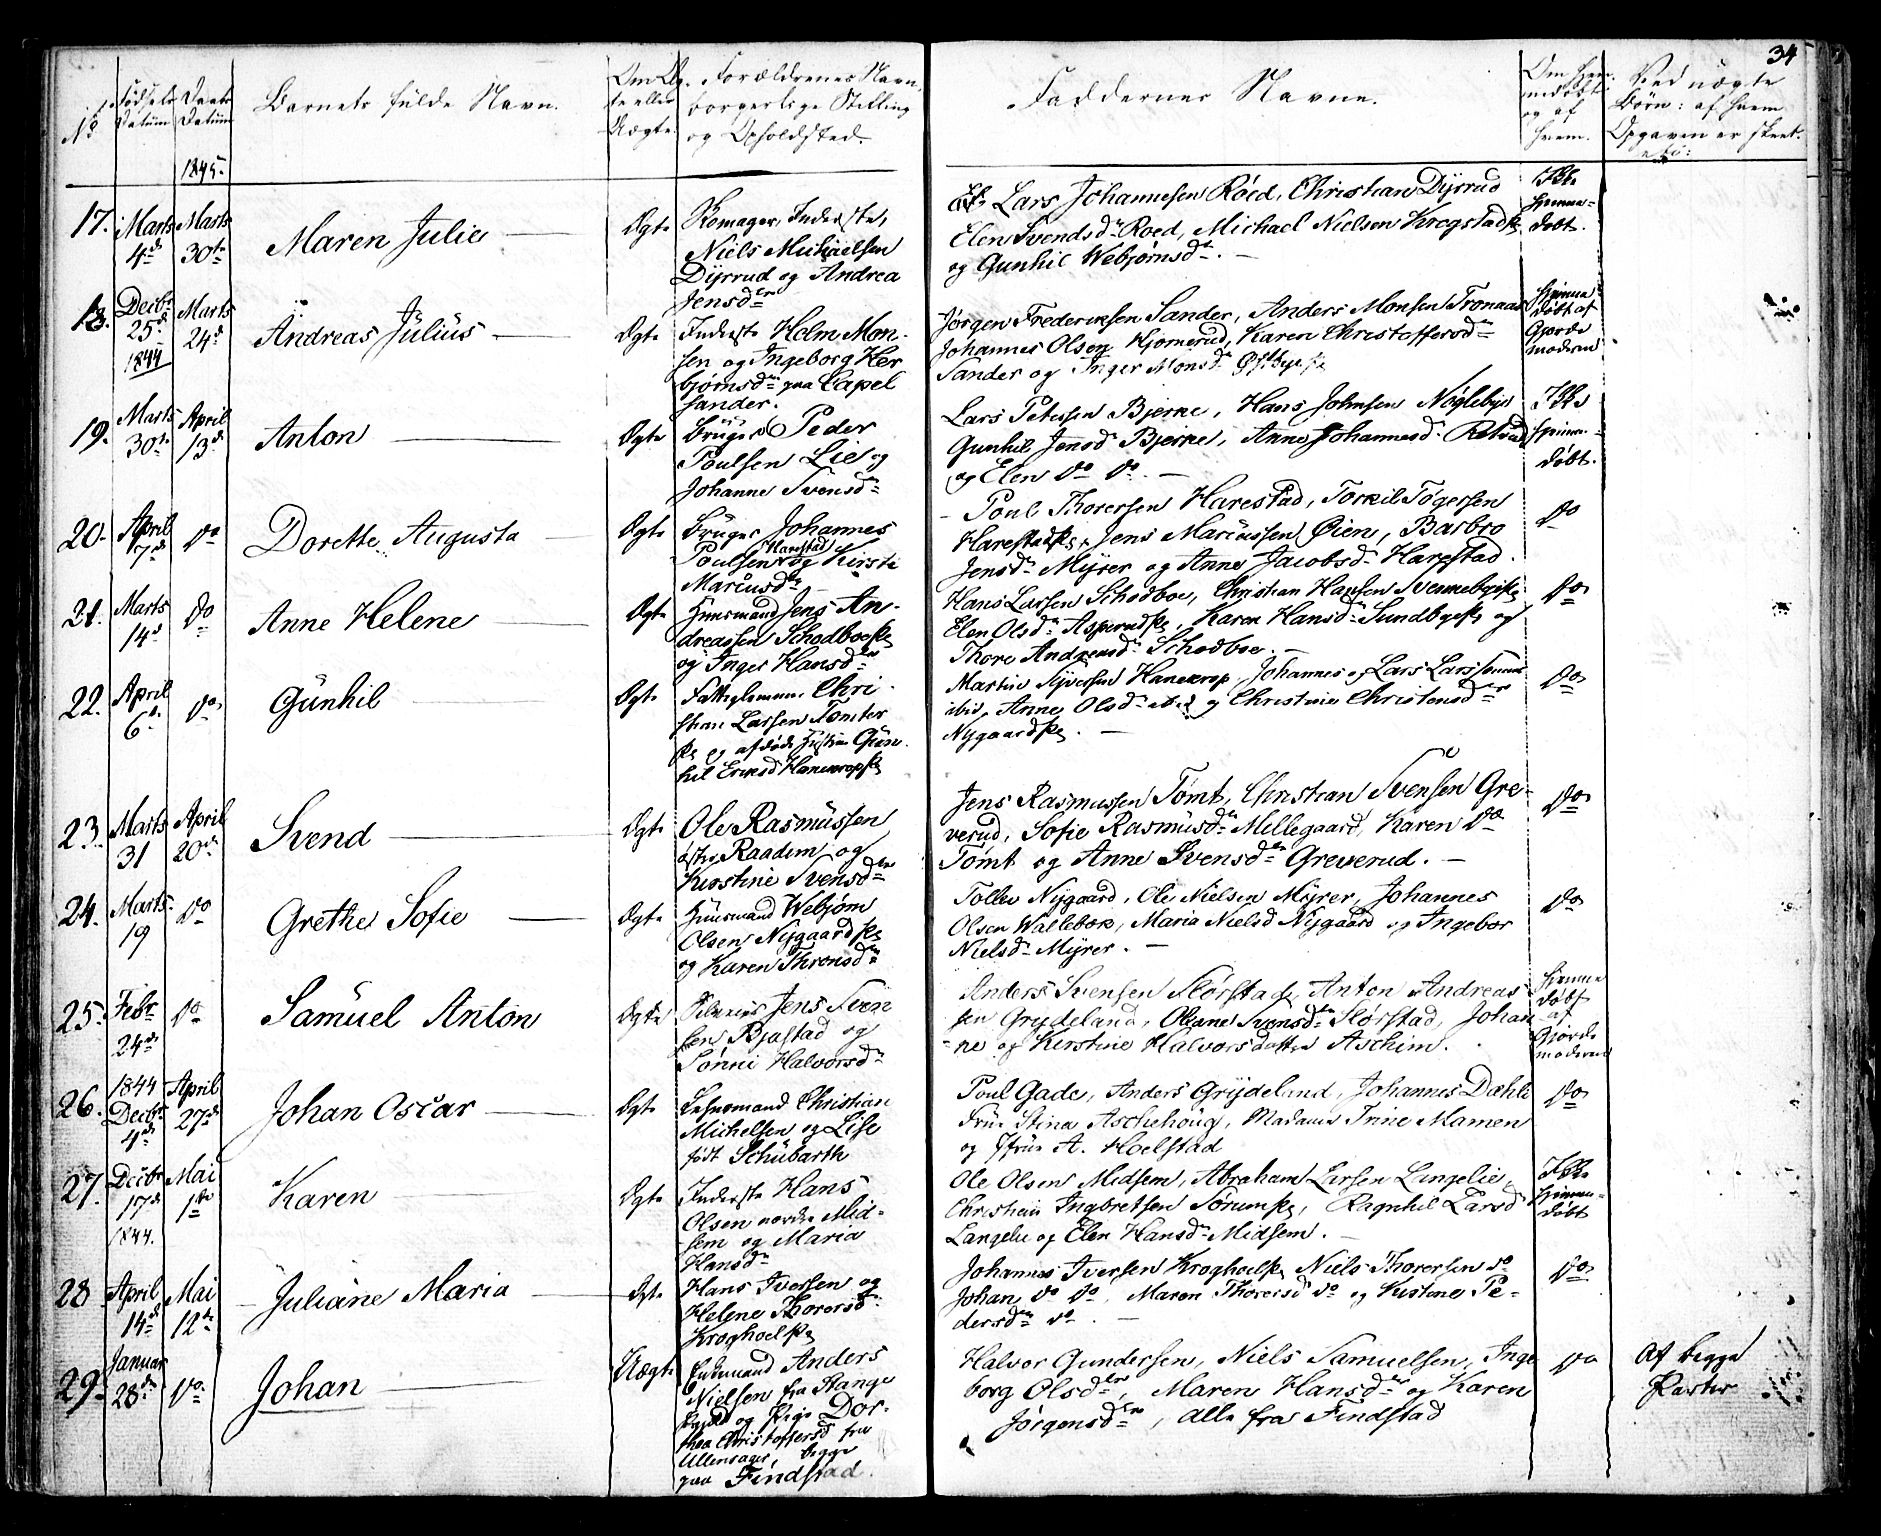 34
No
Fødsels Datum
Daabs Datum
Barnets fulde Navn.
Om Ægte eller Uægte
Forældrenes Navn, borgerlige Stilling og Opholdsted.
Faddernes Navne.
Om hjemmedøbt og af hvem.
Ved uægte Børn: af hvem Opgaven er skeet
1845.
17. Marts 4de Marts 30te
Maren Julie
Ægte
Skomager, Inderste,
Niels Michaelsen
Dyrrud og Andrea
Jensdtr
Lars Johannesen Røed, Christian Dyrrud
Elen Svendsdr Roed, Michael Nielsen Krogstadsk
og Gunhil Webjørnsdr. —
Ikke
hjemme-
døbt.
18. Decbr 25de 1844 Marts 24de
Andreas Julius
Ægte
Inderste Helm Mon-
sen og Ingeborg Her
bjørnsdtr paa Capel
sander.
Jørgen Frederiksen Sander, Anders Monsen Tronaas
Johannes Olsen Kjomerud, Karen Christoffersdtr
Sander og Inger Monsdr
hjemme
døbt af
Gjorde
moderen
19. Marts 30te April 13de
Anton
Ægte
Bruger Peder
Poulsen Lie og
Johanne Svensdr
Lars Petersen Bjerke, Hans Johnsen Nøgleby
Gunhil Jensd Bjerke, Anne Johannesd.
og Elen do do. —
Ikke
hjemme-
døbt.
20. April 7de do
Dorette Augusta
Ægte
Bruger Johannes
Poulsen Harestad og Kirsti
Marcusdtr
Poul Thorersen Harestad, Torkil Togersen
Harestadsk, Jens Marcussen Øien, Barbro
Jensdr Myrer og Anne Jacobsdr Harestad.
do
21. Marts 14de do
Anne Helene
Ægte
Huusmand Jens An-
dreassen Schodboesk
og Inger Hansdtr
Hans Larsen Schodboe, Christian Hansen Svennebyesk
Elen Olsdr Asperudsk, Karen Hansdr Sundbyesk og
Thore Andreasd. Schodboe. —
do
22. April 6te do
Gunhil
Ægte
Fattiglemm Chri-
stian Larsen Tomter
sk og afdøde Hustru Gun-
hil Eriksd Hanekropsk
Martin Syversen Hanekrop, Johannes og Lars Larssønner
ibid, Anne Olsdr ibid og Christine Christensdtr
Nygaardsk. —
do
23. Marts 31 April 20de
Svend
Ægte
Ole Rasmussen
østre Raadim og
Kirstine Svensdtr
Jens Rasmussen Tømt, Christian Svensen Gre-
verud, Sofie Rasmusdtr Mellegaard, Karen do
Tømt og Anne Svensdtr Greverud. —
do
24. Marts 19 do
Grethe Sofie
Ægte
Huusmand Webjørn
Olsen Nygaardsk
og Karen Thronsdtr
Tollev Nygaard, Ole Nielsen Myrer, Johannes
Olsen Wallebæk, Maria Nielsd Nygaard og Ingebor
Nielsdr Myrer. —
do
25. Febr 24de do
Samuel Anton
Ægte
Jens Sven
sen Bjastad og
Sønni Halvorsdtr
Anders Svensen Slorstad, Anton Andreas
sen Grydeland, Oleane Svensdtr Slørstad, Johan
ne og Kirstine Halvorsdatter Aschim.
hjemme
døbt
af
Gjorde
moderen
26. 1844 Decbr 4de April 27de
Johan Oscar
Ægte
Lehnsmand Christian
Michelsen og Lise
født Schubarth
Poul Gade, Anders Grydeland, Johannes Dæhli
Fru Stina Aschehoug, Madame Trine Mamen
og Jfru A. Hoelstad
do
27. Decbr 17de 1844. Mai 1ste
Karen
Ægte
Inderste Hans
Olsen nordre Mid-
sem og Maria
Hansdtr
Ole Olsen Midsem, Abraham Larsen Langelie,
Christian Ingbretsen Sørumsk, Ragnhil Larsd
Langelie og Elen Hansdr Midsem. —
Ikke
hjemme-
døbt
28 April 14de Mai 12te
Juliane Maria
Ægte
Hans Iversen og
Helene Thorersdtr
Kroghoelsk
Johannes Iversen Kroghoelsk Niels Thorersen do
Johan do do, Maren Thorersd do og Kirstine Pe-
dersdtr do. —
do
29. Januar 28de do.
Johan
Uægte
Anders
Nielsen fra Stange
og Pige Dor-
thea Christoffersd fra
Ullensager, begge
paa Findstad.
Halvor Gundersen, Niels Samuelsen, Inge
borg Olsdtr, Maren Hansdtr og Karen
Jørgensdtr, alle fra Findstad
do
Af begge
Parter